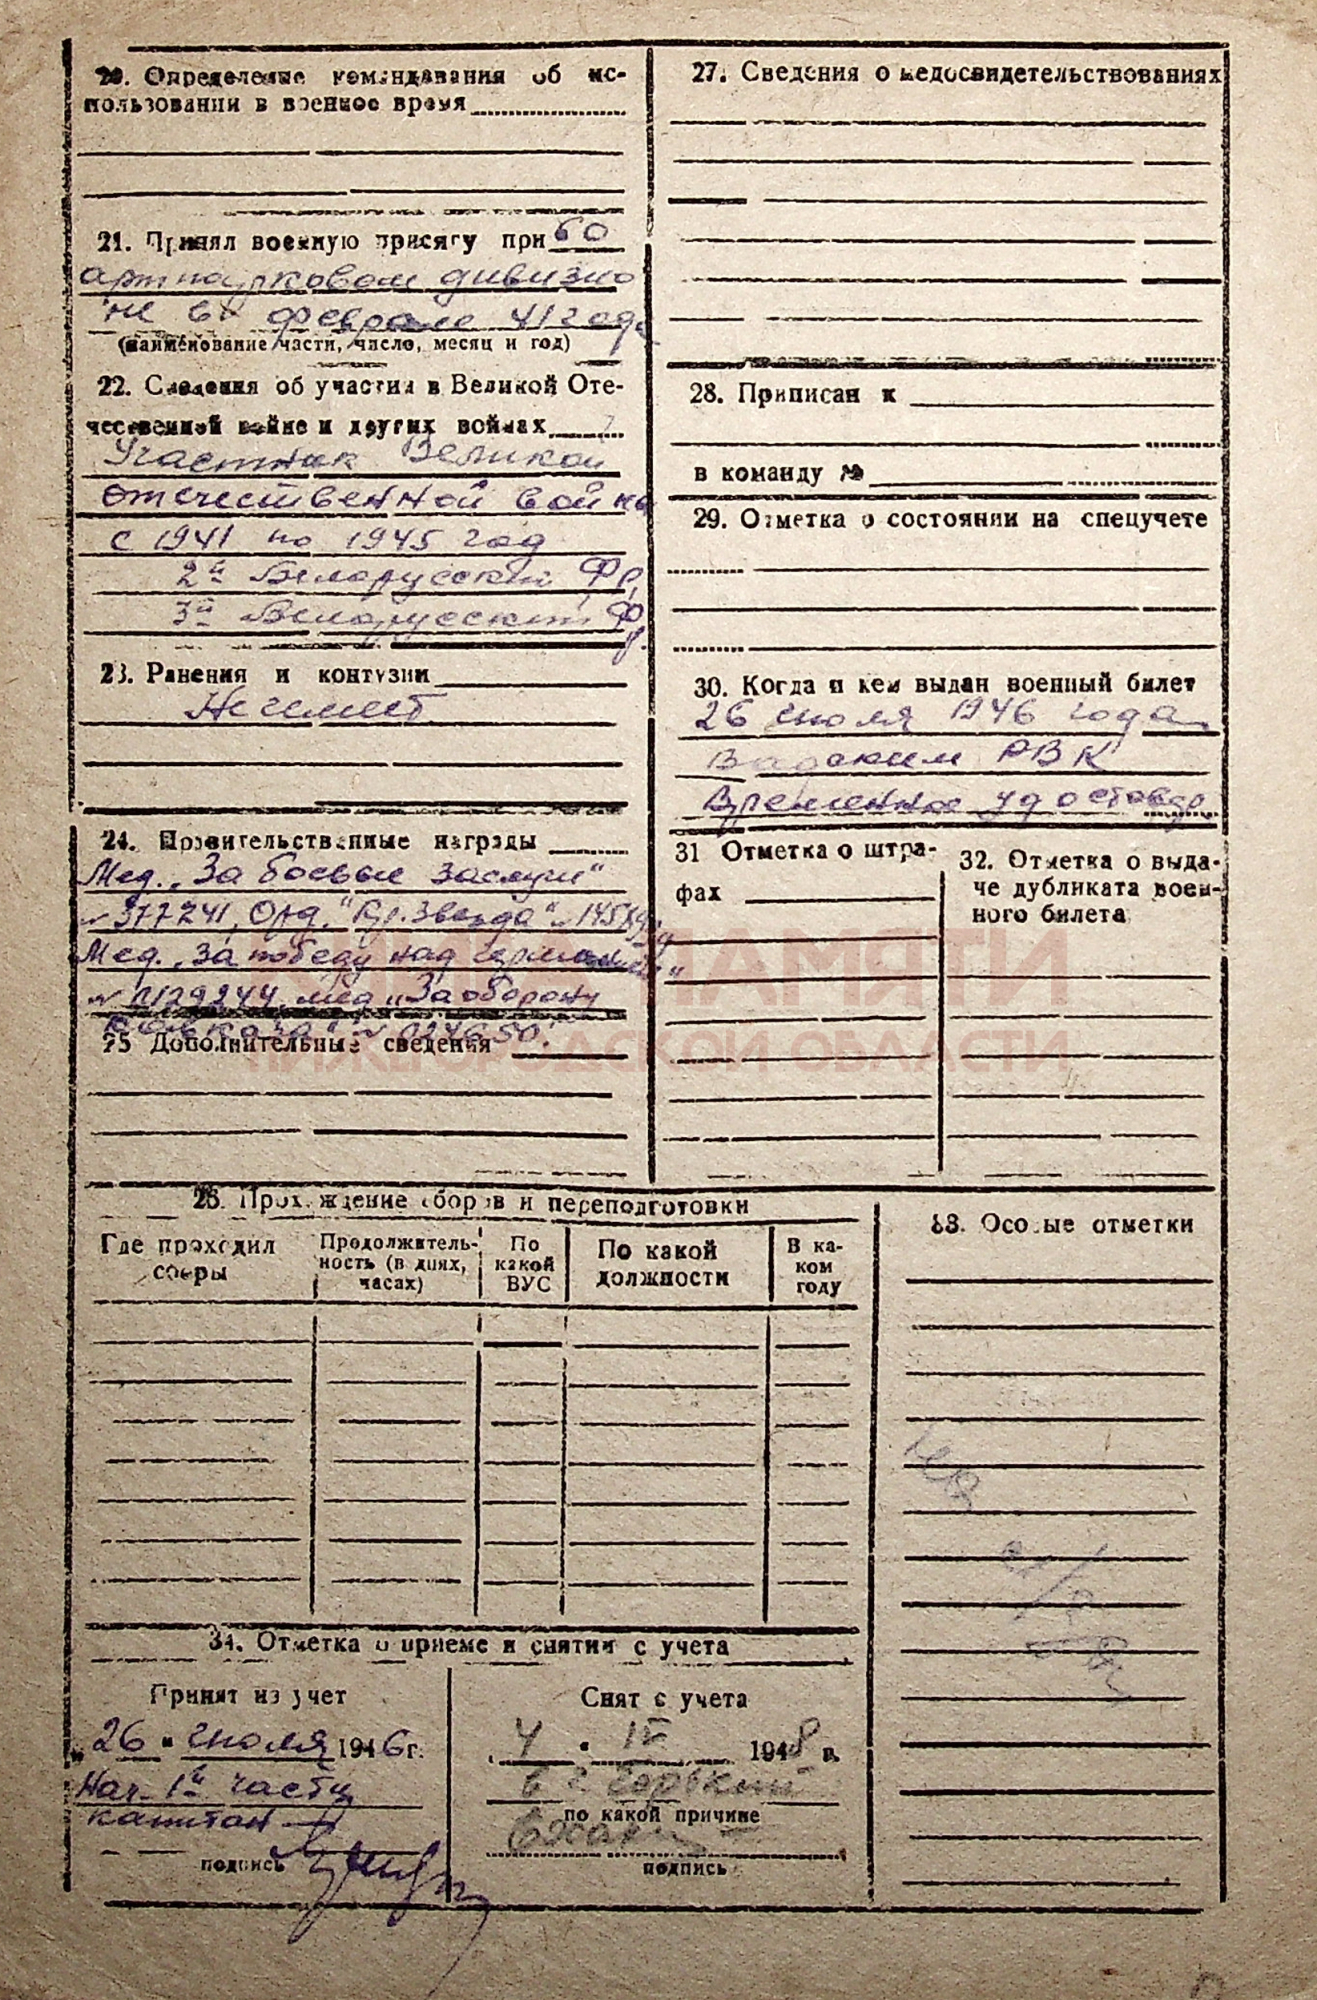 20. Определение командования об ис-
пользовании в военное время
21. Принял военную присягу при 60
артпарковом дивизио
не в феврале 41 года
(наименование части, число, месяц и год)
22. Сведения об участии в Великой Оте-
чественной войне и других войнах
Участник Великой
отечественной войны
с 1941 по 1945 год
2й Белорусский Фр.
3й Белорусский Фр.
23. Ранения и контузии
Не имеет
24. Правительственные награды
Мед. „За боевые заслуги"
№ 377241, Орд. "Кр. Звезда" №
Мед. „За победу над германией"
№ 0129244, мед. „За оборону
Кавказа" № 024650".
25 Дополнительные сведения
27. Сведения о медосвидетельствованиях
28. Приписан к
в команду №
29. Отметка о состоянии на спецучете
30. Когда и кем выдан военный билет
26 июля 1946 года
Вадским РВК
Временное удостовер
31 Отметка о штра-
фах
32. Отметка о выда-
че дубликата воен-
ного билета
КНИГА ПАМЯТИ
НИЖЕГОРОДСКОЙ ОБЛАСТИ
26. Прохождение сборов и переподготовки
Где проходил
сборы
Продолжитель-
ность (в днях,
часах)
По
какой
ВУС
По какой
должности
В ка-
ком
году
33. Особые отметки
34. Отметка о приеме и снятии с учета
Принят на учет
„26" июля 1946 г.
Нач. 1й части
капитан
подпись
Снят с учета
„4" IV 1948 г.
в г. Горький
по какой причине
подпись